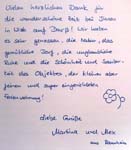 Vielen herzlichen Dank für
die wunderschöne Zeit bei Ihnen
in Wiek auf Darß! Wir haben
es sehr genossen, die Natur, das
gemütliche Dorf, die unglaubliche
Ruhe und die Schönheit und Sauber-
keit des Objektes, der kleinen aber
feinen und super eingerichteten
Ferienwohnung!
Liebe Grüße
Martina und Alex
aus